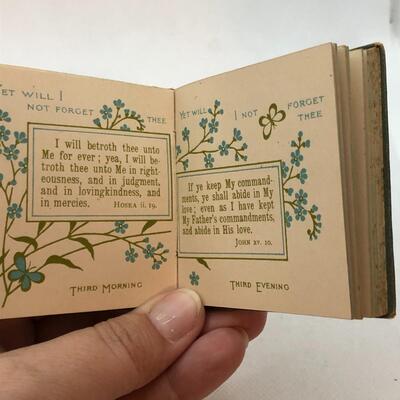 YET WILL I
NOT FORGET
THEE
I will betroth thee unto
Me for ever; yea, I will be-
troth thee unto Me in right-
eousness, and in judgment,
and in lovingkindness, and
in mercies. HOSEA ii. 19.
THIRD MORNING
YET WILL I NOT FORGET
THEE
If ye keep My command-
ments, ye shall abide in My
love; even as I have kept
My Father's commandments,
and abide in His love.
JOHN XV. 10.
THIRD EVENING